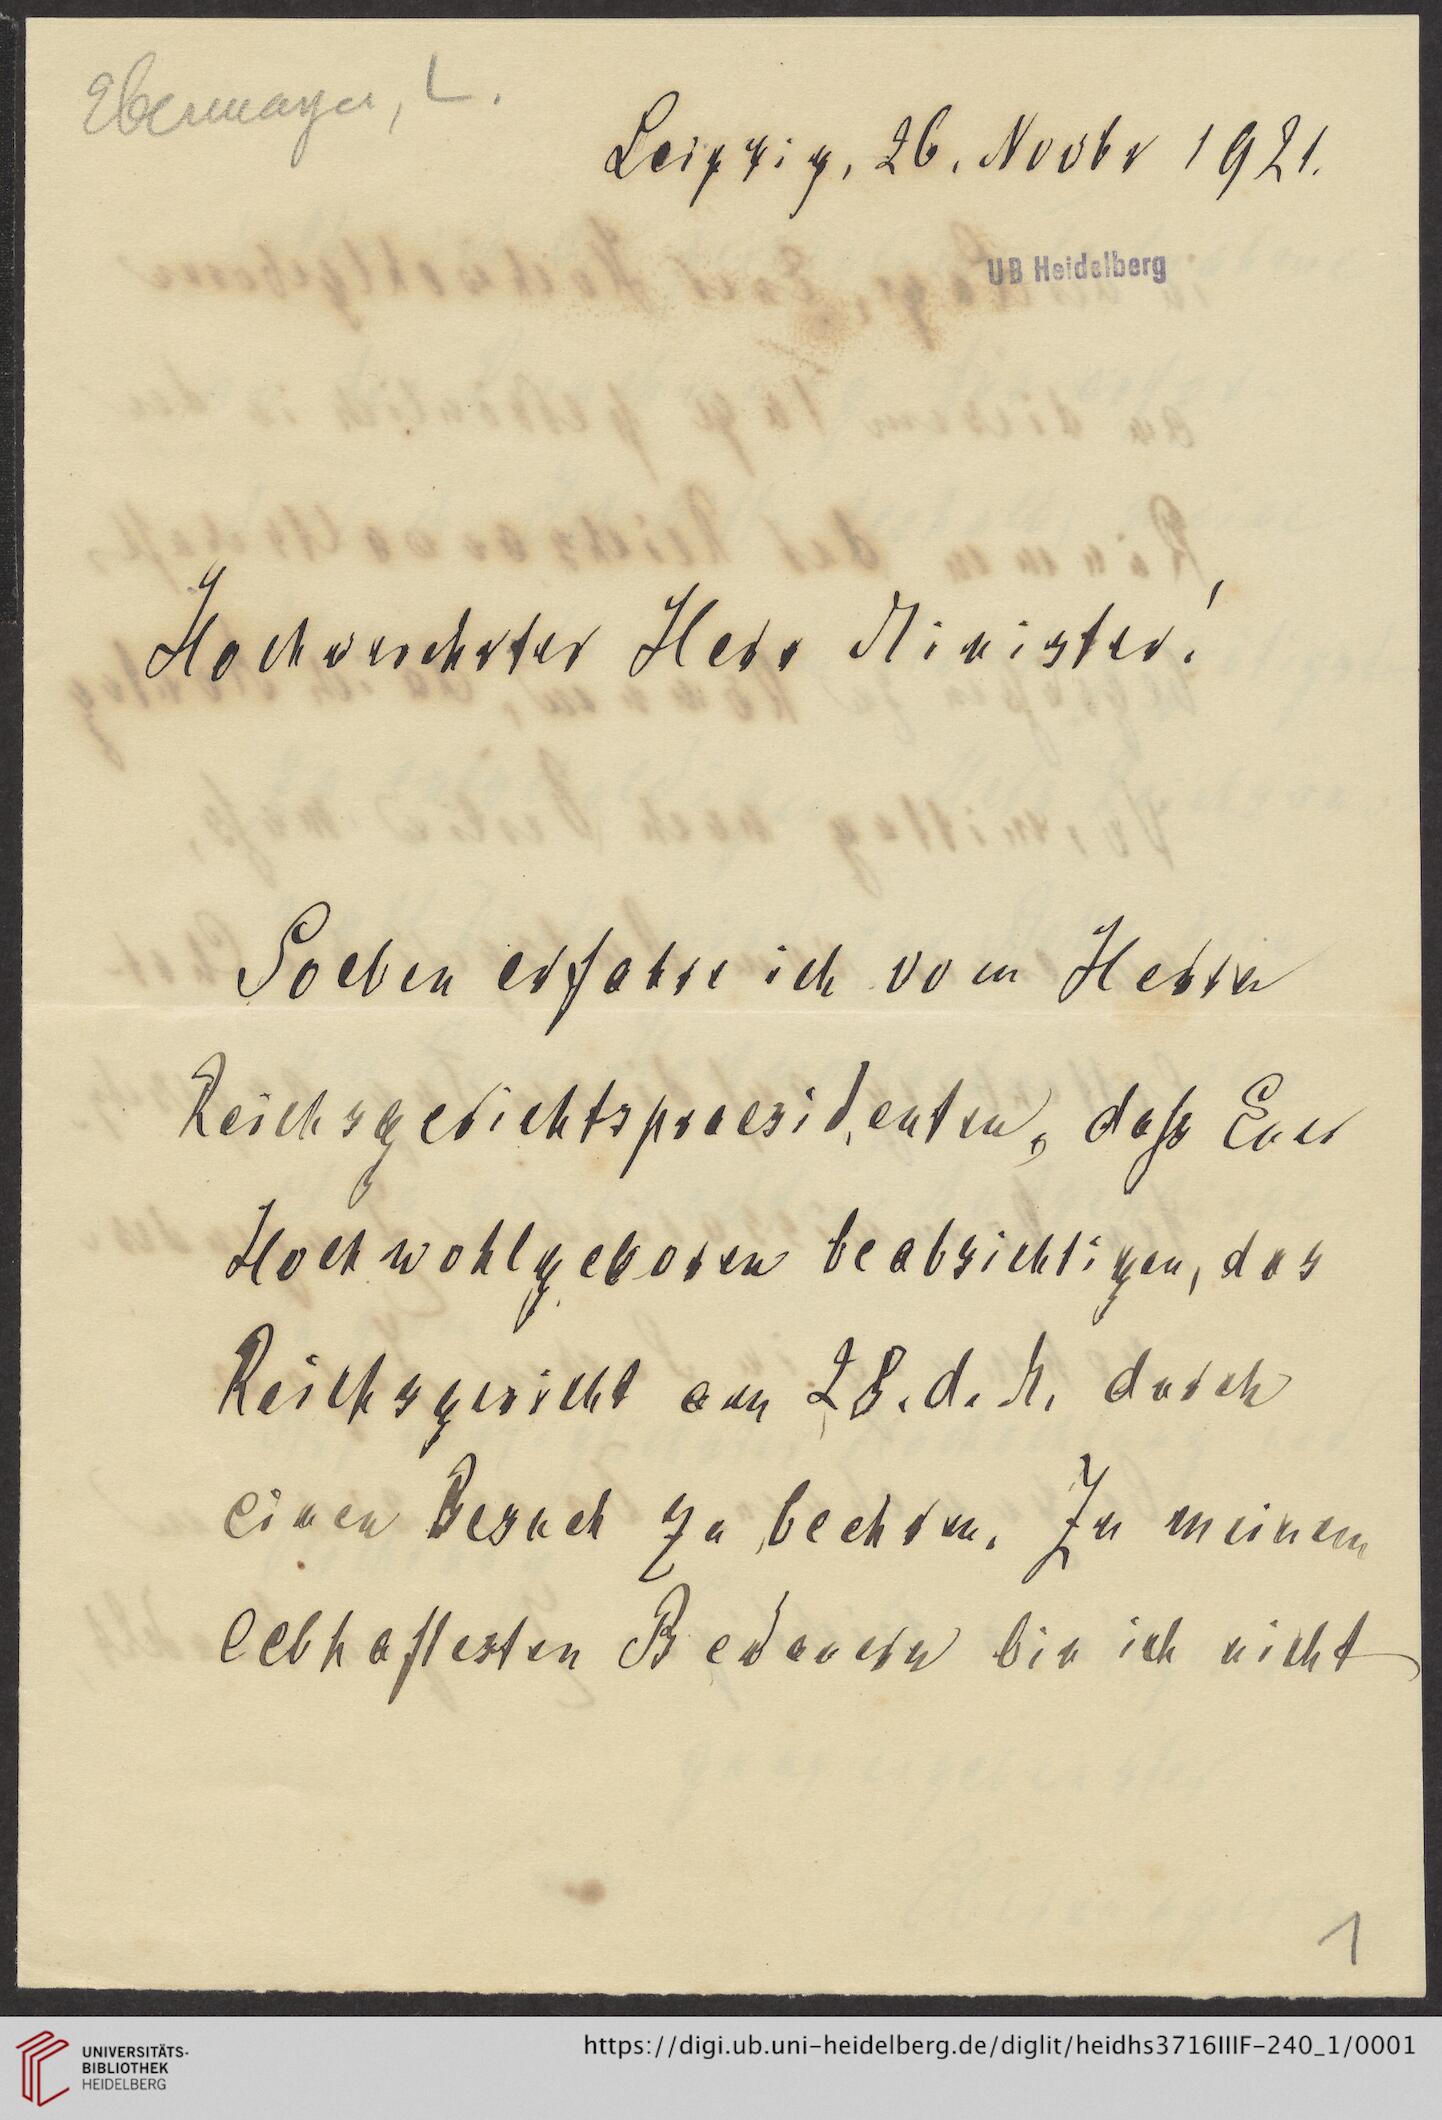 Ebermayer, L.
Leipzig, 26. Novbr 1921.
UB Heidelberg
Hochverehrter Herr Minister!
Soeben erfahre ich vom Herrn
Reichsgerichtspraesidenten, daß Euer
Hochwohlgeboren beabsichtigen, das
Reichsgericht am 28. d. M. durch
einen Besuch zu beehren. Zu meinem
lebhaftesten Bedauern bin ich nicht
1
UNIVERSITÄTS-
BIBLIOTHEK
HEIDELBERG
https://digi.ub.uni-heidelberg.de/diglit/heidhs3716IIIF-240_1/0001